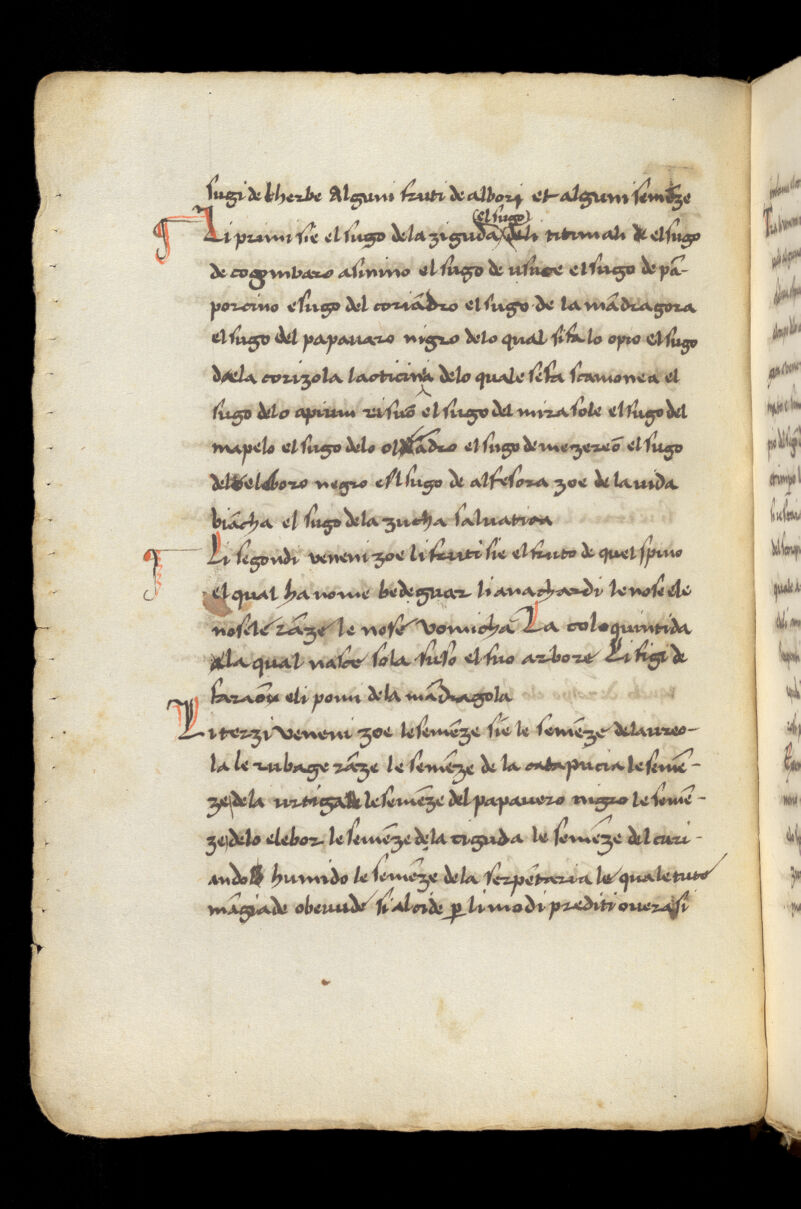 sugi de kherbe Alguni fruti de albori et alguni semēze
(el sugo)
Li primi sie el sugo dela ziguda deli titimali de el sugo
de cogombaro asinino el sugo de usuce el sugo de pā-
porcino e sugo del coriādro el sugo de la mādragora
el sugo del papavaro nigro delo qual si fa lo opio el sugo
dela corizola lacticina delo quale se fa scamonea el
sugo delo apium risus el sugo del mirasole el sugo del
mapelo el sugo delo oleādro el sugo de mezereō el sugo
del eleboro negro el sugo de alfesora zoe de la vida
biācha el sugo dela zucha salvatica
Li segondi veneni zoe li fruti sie el fruto de quel spino
el qual ha nome bedeguar li anachardi le nose ele
nosele rāze le nose vomicha La coloquintida
ala qual nasce sola suso el suo arbore Li figi de
faraon e li pomi de la mādragola
Li terzi veneni zoe le semēze sie le semēze de laureo-
la le rubage rāze le semēze de la catapucia le semē-
ze dela urtiga le semēze del papavero nigro le semē-
ze delo elebor le semēze dela ciguda le semēze del curi-
ando humido le semēze de la serpētaria le quale tute
māgiade o bevude si alcide p li modi prediti overa si